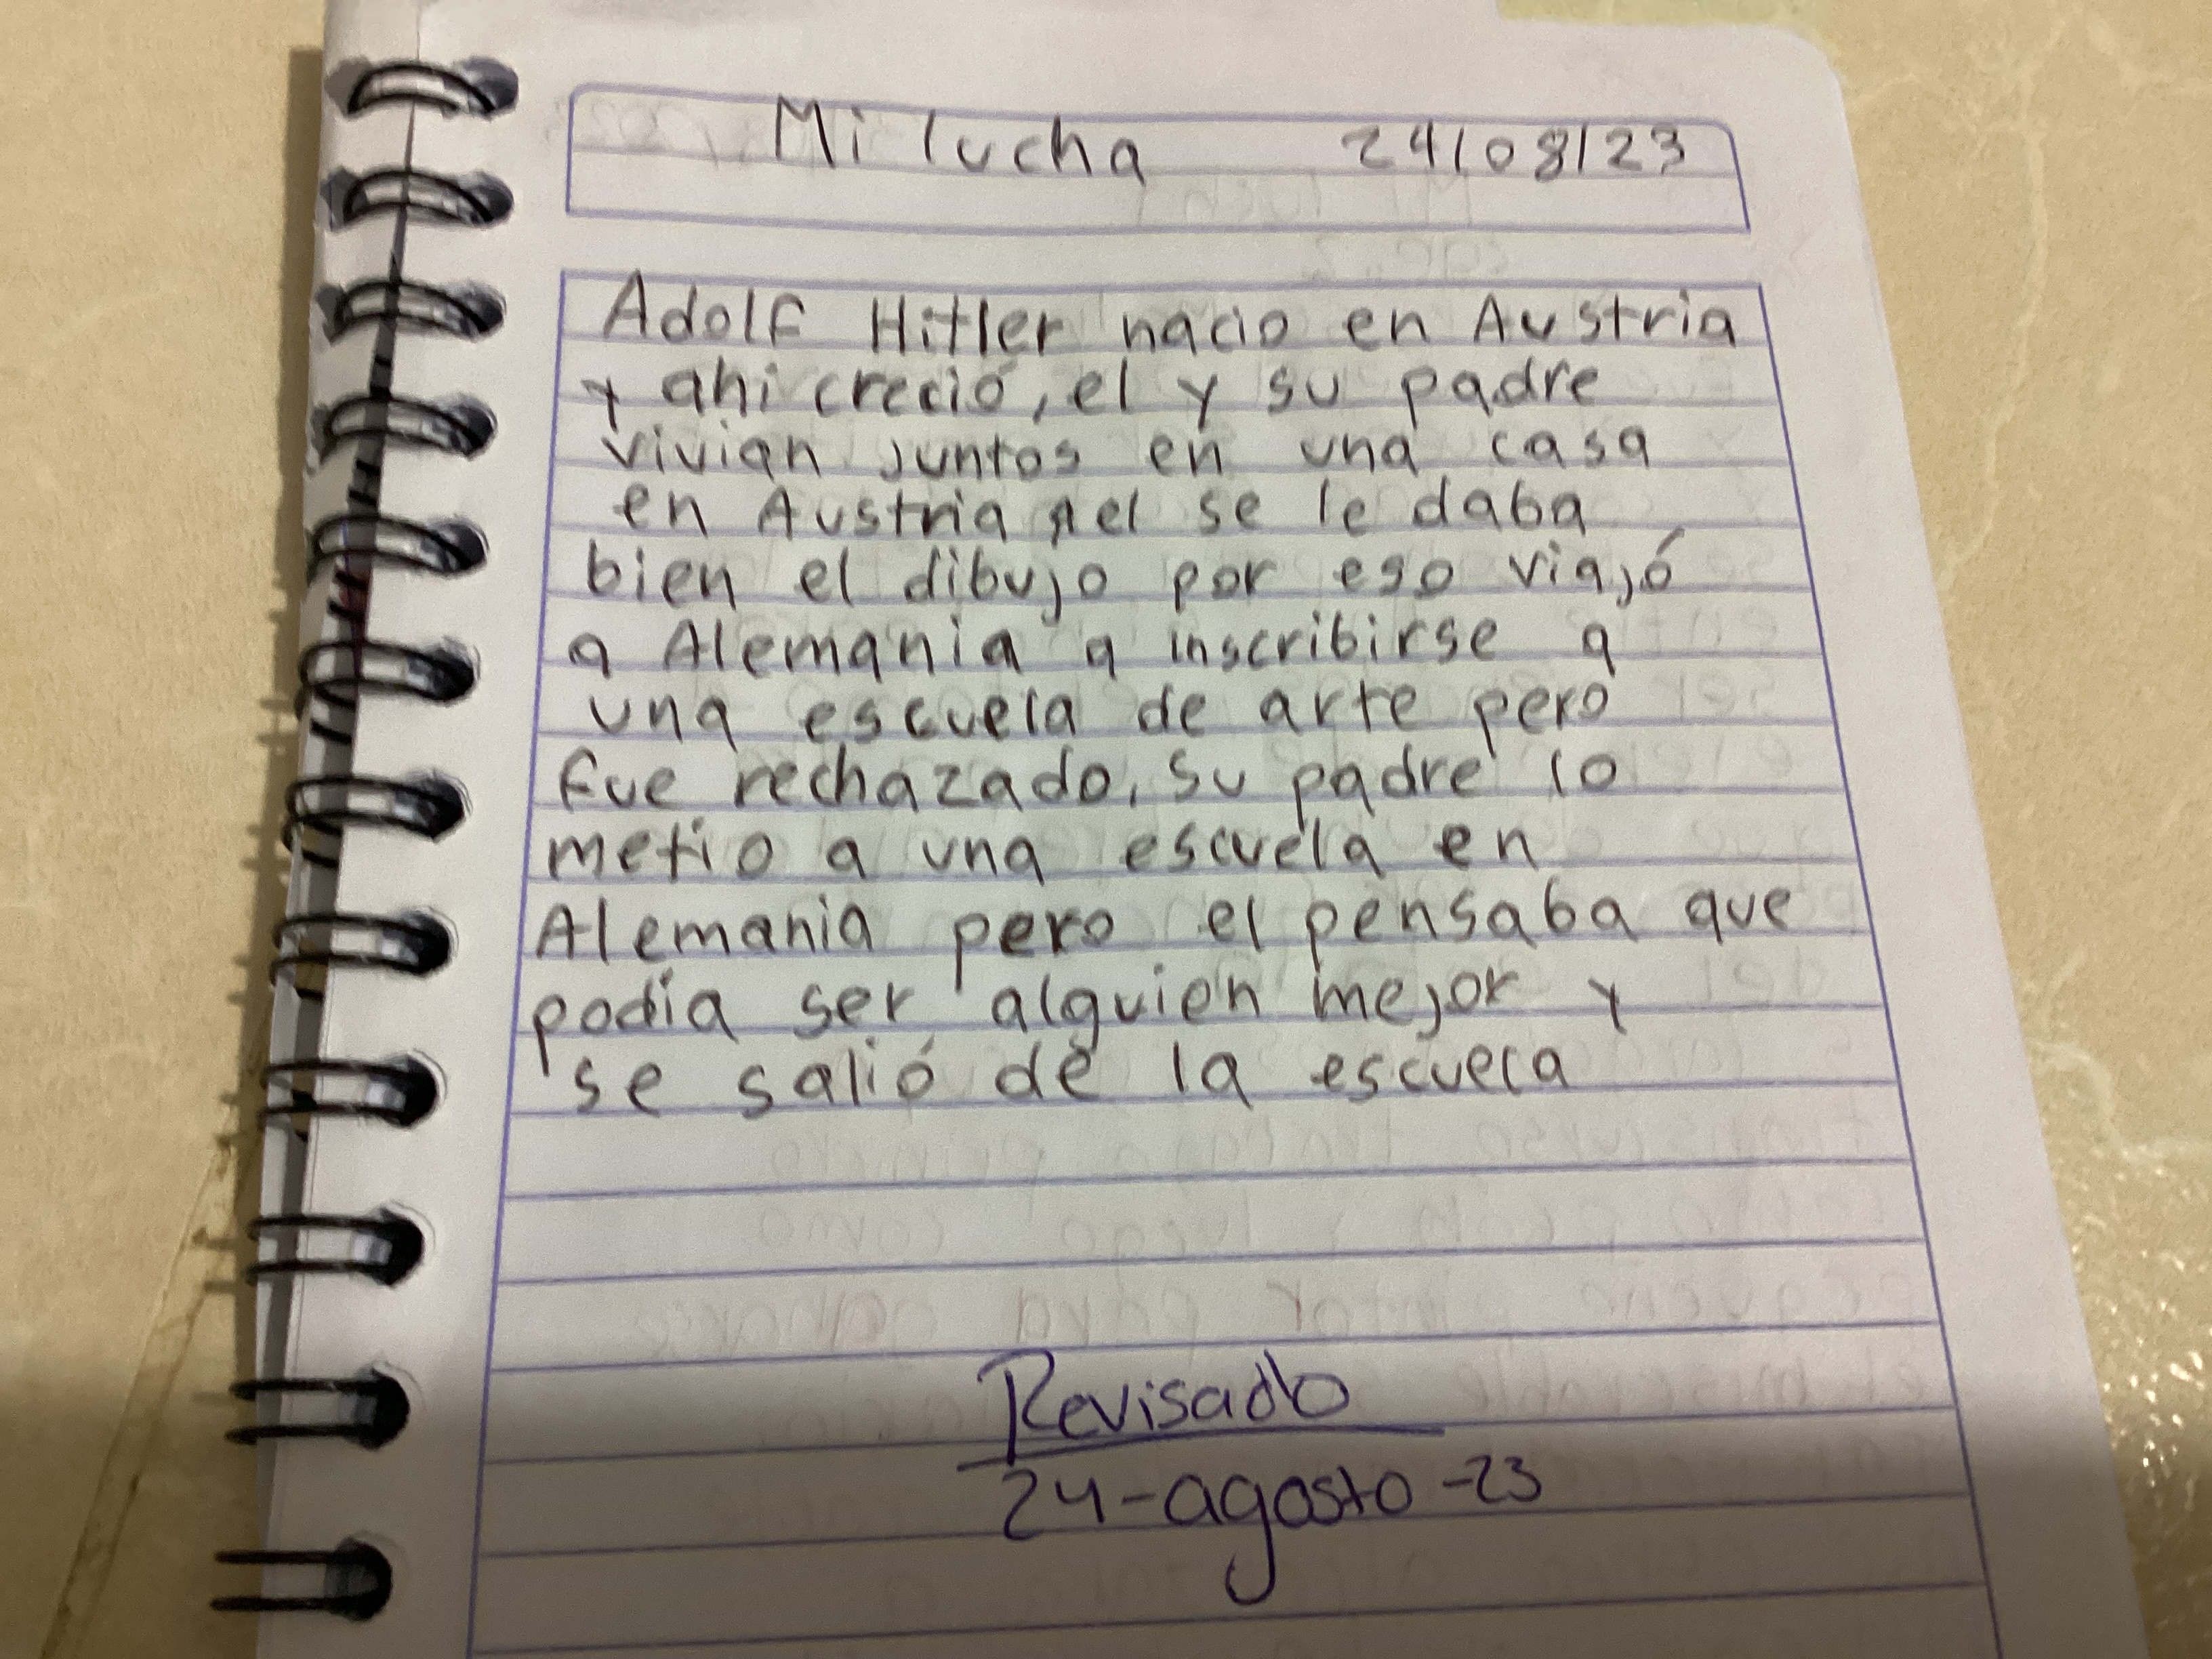 Mi lucha 24/08/23
Adolf Hitler nacio en Austria
y ahi creció, el y su padre
vivian juntos en una casa
en Austria, el se le daba
bien el dibujo por eso viajó
a Alemania a inscribirse a
una escuela de arte pero
fue rechazado, su padre lo
metio a una escuela en
Alemania pero el pensaba que
podia ser alguien mejor y
se salió de la escuela
Revisado
24-agosto-23